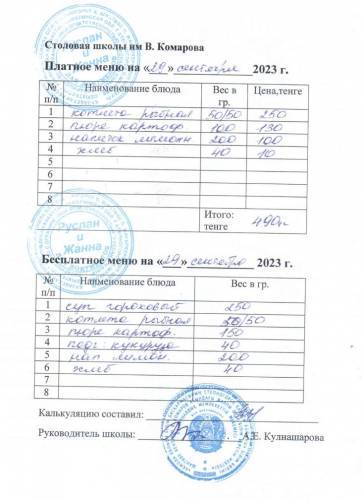 Руслан и Жанна
Столовая школы им В. Комарова
Платное меню на «29» сентября 2023 г.
№ п/п Наименование блюда Вес в гр. Цена,тенге
1 котлета рыбная 50/50 250
2 пюре картоф 100 130
3 напиток лимонн 200 100
4 хлеб 40 10
5
6
7
8
Итого: тенге 490
Руслан и Жанна
Бесплатное меню на «29» сентября 2023 г.
№ п/п Наименование блюда Вес в гр.
1 суп гороховый 250
2 котлета рыбная 50/50
3 пюре картоф. 150
4 подг. кукуруза 40
5 нап лимон. 200
6 хлеб 40
7
8
Калькуляцию составил:
Руководитель школы: А.Е. Кулнашарова